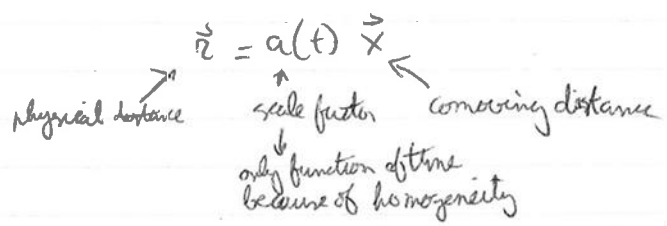 r⃗ = a(t) x⃗
physical distance
scale factor
comoving distance
only function of time
because of homogeneity